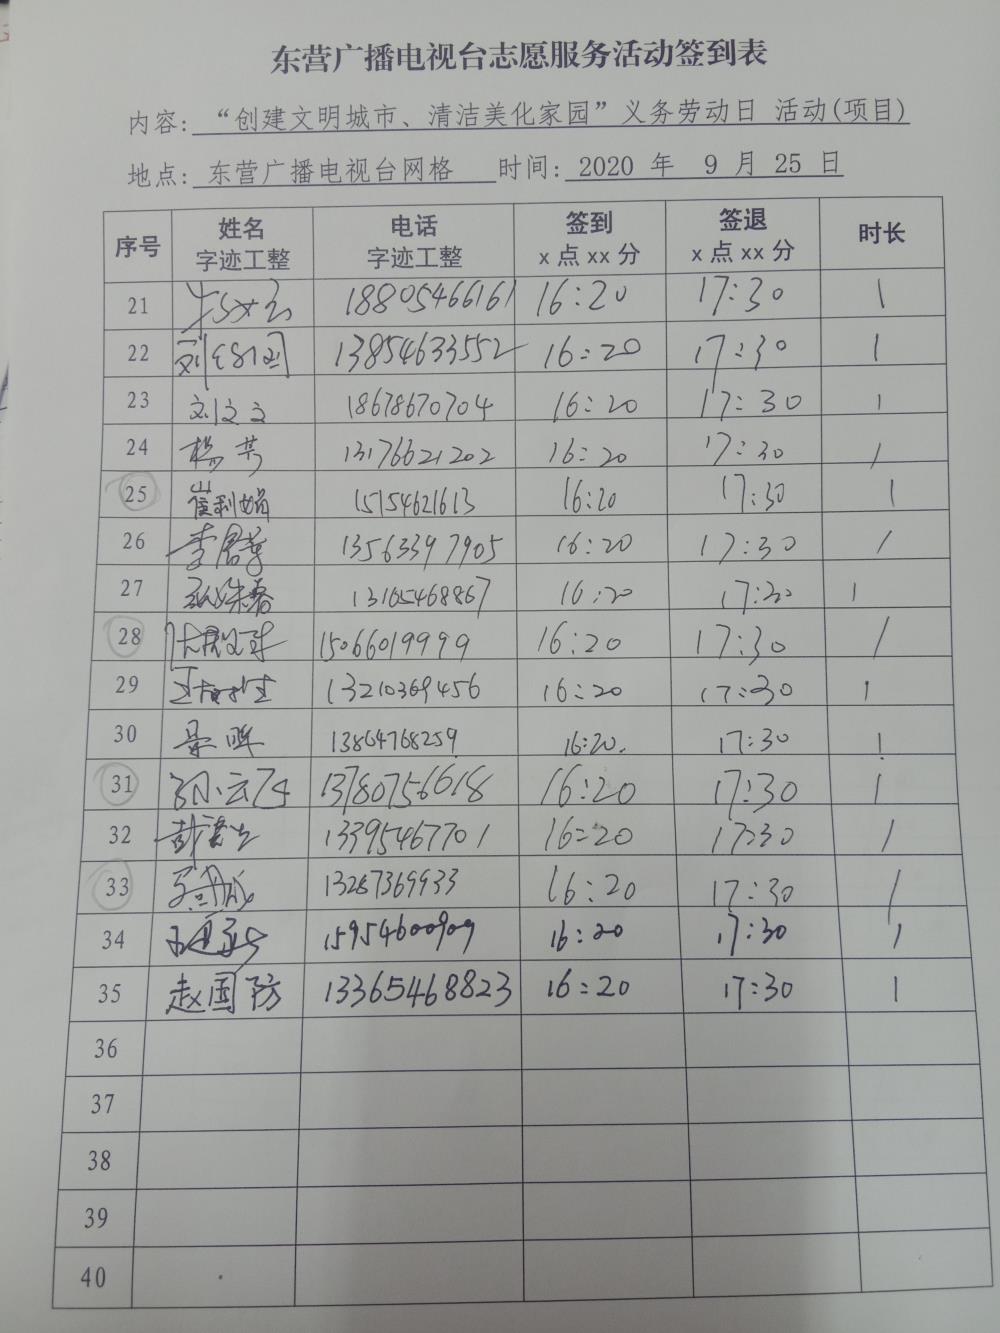 东营广播电视台志愿服务活动签到表
内容: “创建文明城市、清洁美化家园”义务劳动日 活动(项目)
地点: 东营广播电视台网格 时间: 2020 年 9 月 25 日
序号 姓名 字迹工整 电话 字迹工整 签到 x 点 xx 分 签退 x 点 xx 分 时长
21 18805466161 16:20 17:30 1
22 13854633552 16:20 17:30 1
23 刘文文 18678670704 16:20 17:30 1
24 杨芳 13176621202 16:20 17:30 1
25 崔利娟 15154621613 16:20 17:30 1
26 13563397905 16:20 17:30 1
27 13165468867 16:20 17:30 1
28 15066019999 16:20 17:30 1
29 13210369456 16:20 17:30 1
30 景晖 13864768259 16:20 17:30 1
31 13780756618 16:20 17:30 1
32 13395467701 16:20 17:30 1
33 13287369933 16:20 17:30 1
34 15954600909 16:20 17:30 1
35 赵国防 13365468823 16:20 17:30 1
36
37
38
39
40